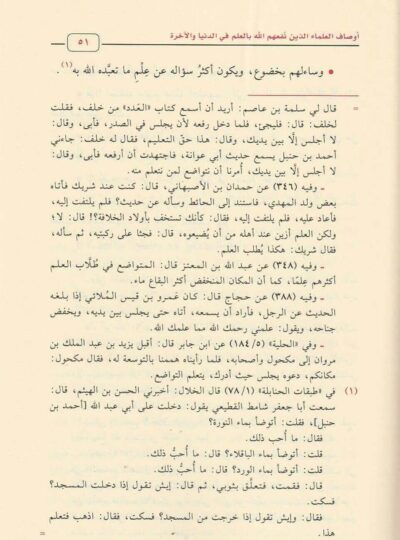 أوصاف العلماء الذين نفعهم الله بالعلم في الدنيا والآخرة
٥١
• وساءلهم بخضوع، ويكون أكثرُ سؤاله عن عِلْمِ ما تعبَّده الله به(١).
= قال لي سلمة بن عاصم: أريد أن أسمع كتاب «العَدد» من خلف، فقلت
لخلف: قال: فليجئ، فلما دخل رفعه لأن يجلس في الصدر، فأبى، وقال:
لا أجلس إلَّا بين يديك، وقال: هذا حقّ التعليم، فقال له خلف: جاءني
أحمد بن حنبل يسمع حديث أبي عوانة، فاجتهدت أن أرفعه فأبى، وقال:
لا أجلس إلَّا بين يديك، أُمرنا أن نتواضع لمن نتعلم منه.
ـ وفيه (٣٤٦) عن حمدان بن الأصبهاني، قال: كنت عند شريك فأتاه
بعض ولد المهدي، فاستند إلى الحائط وسأله عن حديث؟ فلم يلتفت إليه،
فأعاد عليه، فلم يلتفت إليه، فقال: كأنك تستخف بأولاد الخلافة؟! قال: لا؛
ولكن العلم أزين عند أهله من أن يُضيعوه، قال: فجثا على ركبتيه، ثم سأله،
فقال شريك: هكذا يُطلب العلم.
ـ وفيه (٣٤٨) عن عبد الله بن المعتز قال: المتواضع في طُلَّاب العلم
أكثرهم عِلمًا، كما أن المكان المنخفض أكثر البقاع ماء.
ـ وفيه (٣٨٨) عن حجاج قال: كان عَمرو بن قيس المُلائي إذا بلغه
الحديث عن الرجل، فأراد أن يسمعه، أتاه حتى يجلس بين يديه، ويخفض
جناحه، ويقول: علمني رحمك الله مما علمك الله.
ـ وفي «الحلية» (١٨٤/٥) عن ابن جابر قال: أقبل يزيد بن عبد الملك بن
مروان إلى مكحول وأصحابه، فلما رأيناه هممنا بالتوسعة له، فقال مكحول:
مكانكم، دعوه يجلس حيث أدرك، يتعلم التواضع.
(١) في «طبقات الحنابلة» (٧٨/١) قال الخلال: أخبرني الحسن بن الهيثم، قال:
سمعت أبا جعفر شامط القطيعي يقول: دخلت على أبي عبد الله [أحمد بن
حنبل]، فقلت: أتوضأ بماء النورة؟
فقال: ما أُحب ذلك.
قلت: أتوضأ بماء الباقلاء؟ قال: ما أُحب ذلك.
قلت: أتوضأ بماء الورد؟ قال: ما أُحبُّ ذلك.
قال: فقمت، فتعلَّق بثوبي، ثم قال: إيش تقول إذا دخلت المسجد؟
فسكت.
فقال: وإيش تقول إذا خرجت من المسجد؟ فسكت، فقال: اذهب فتعلم
هذا. =